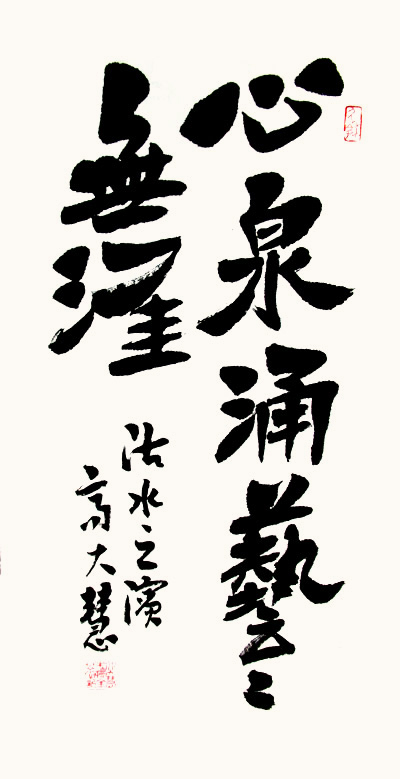 心泉涌藝〻
無涯
沽水之濱
高大慧